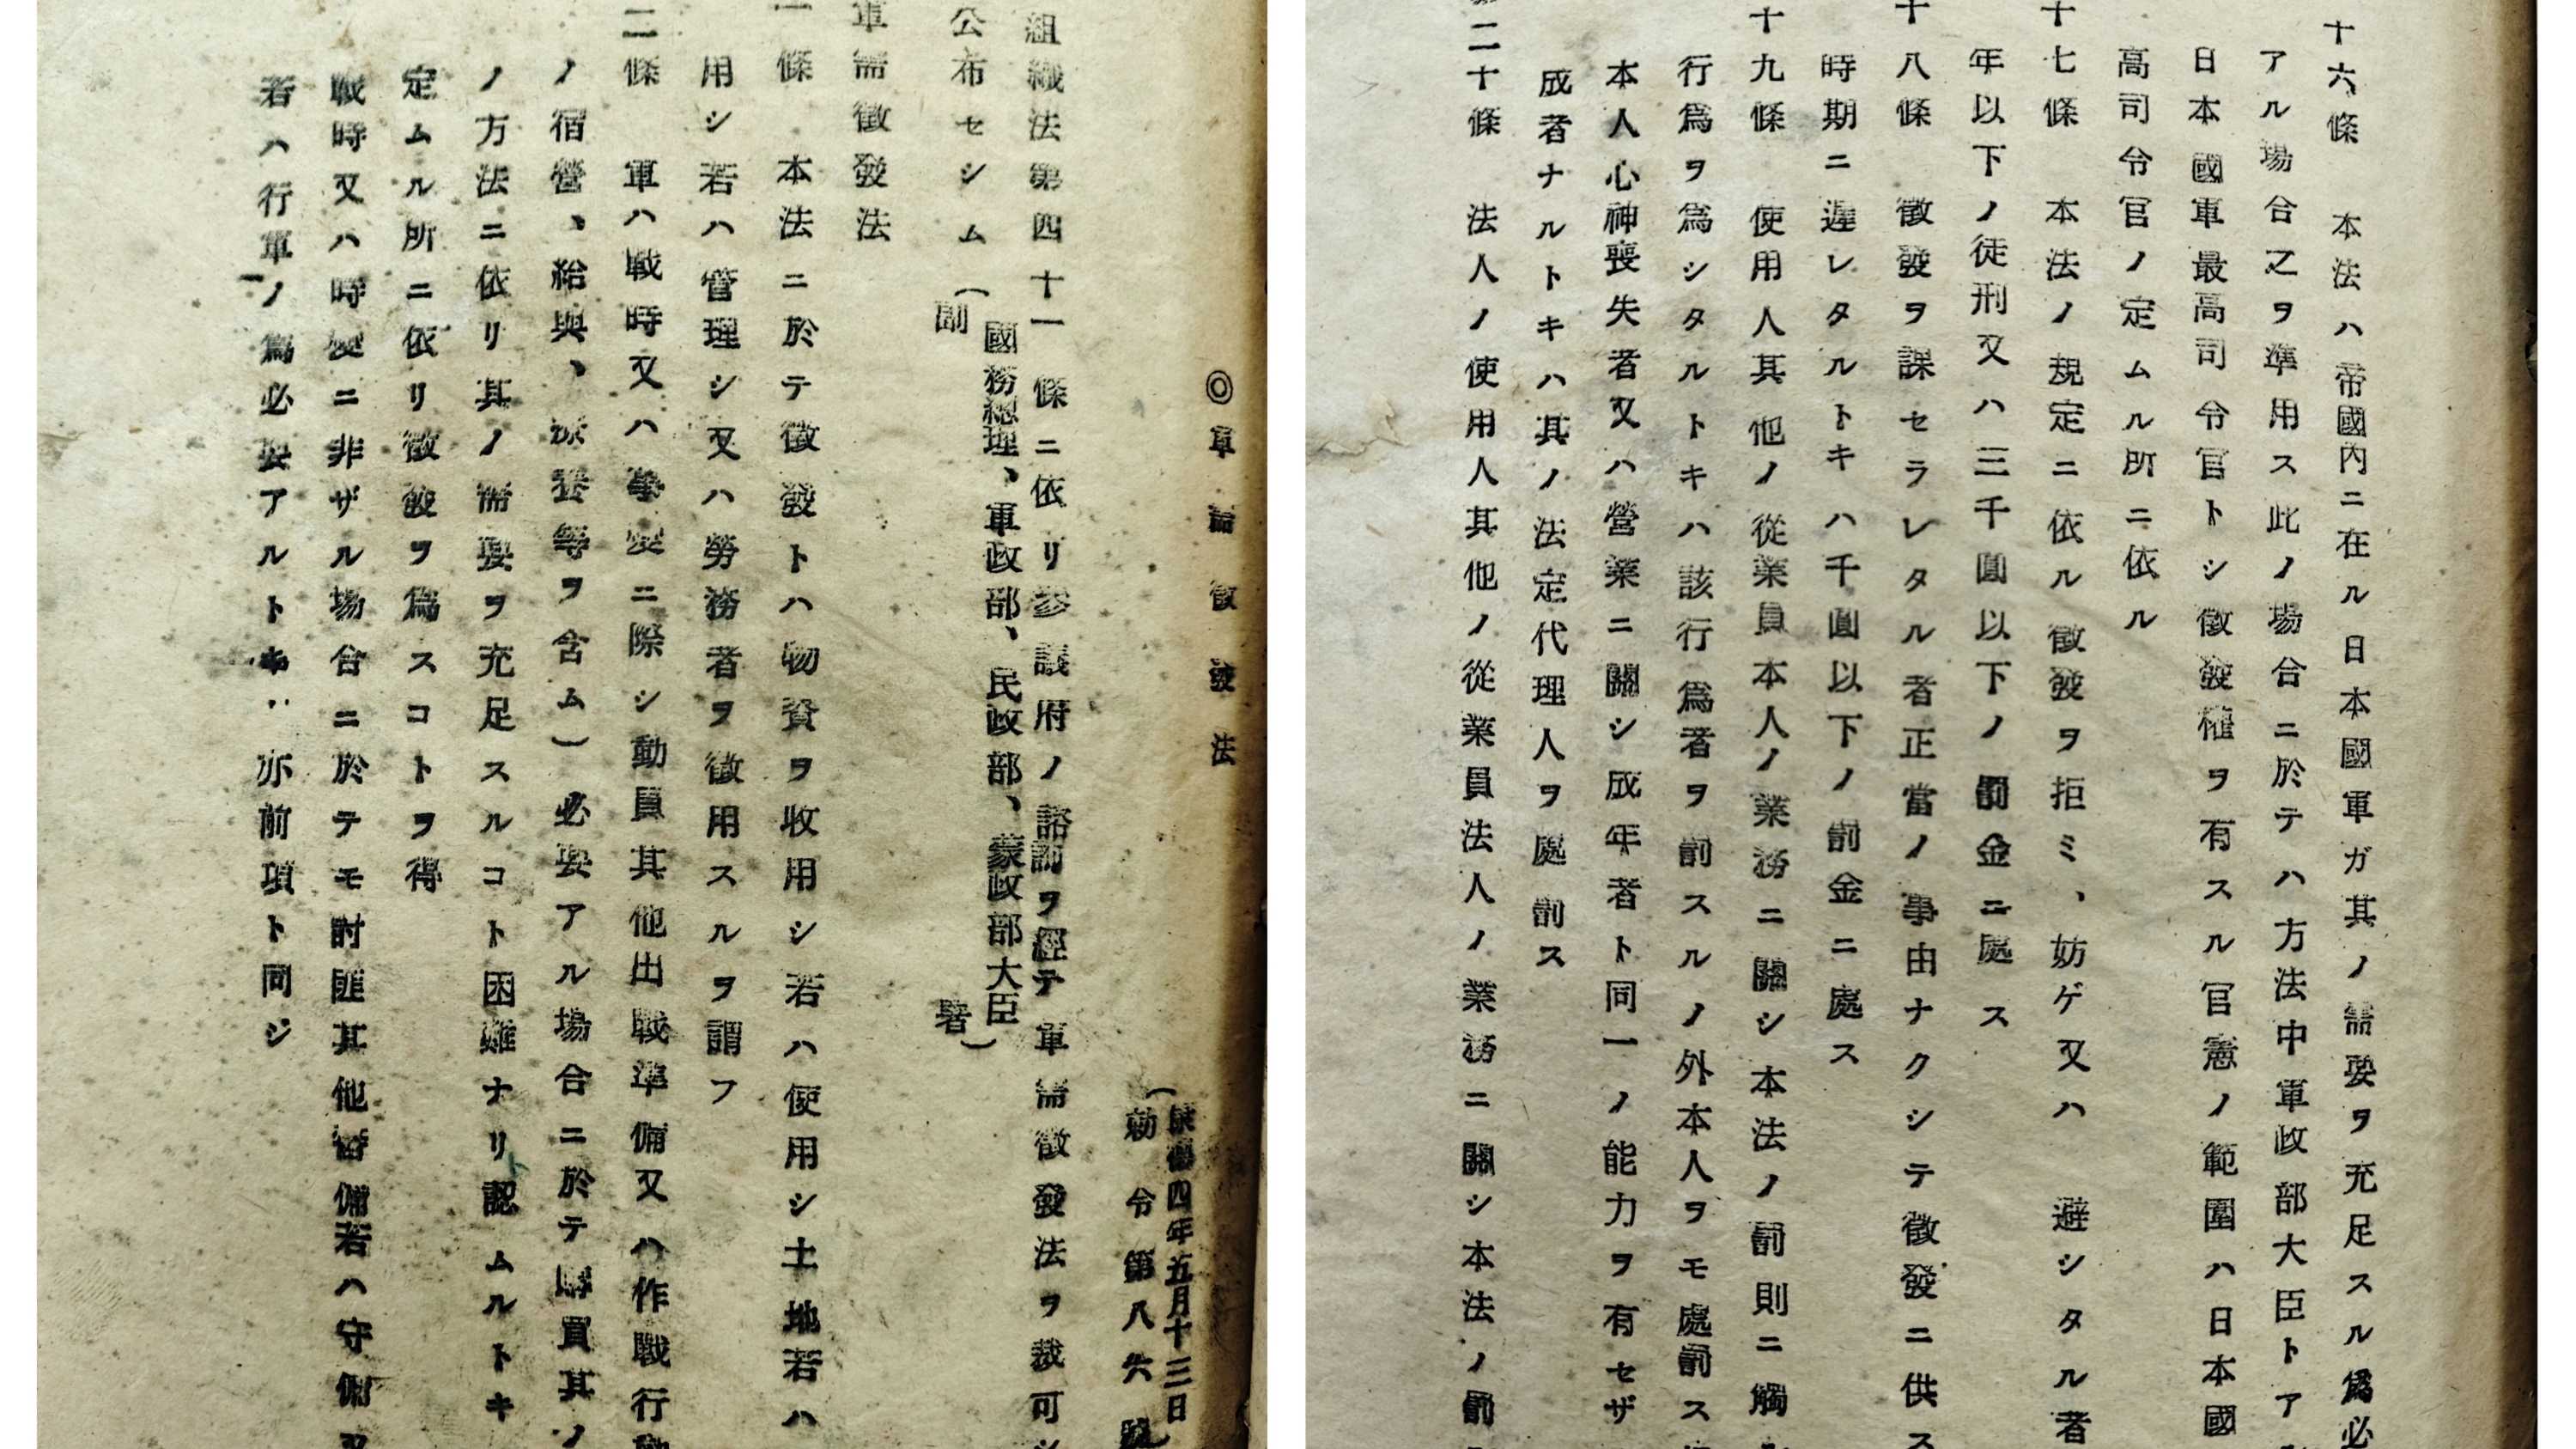 ◎軍需徵發法
(康德四年五月十三日)
勅令第八六號
組織法第四十一條ニ依リ參議府ノ諮詢ヲ經テ軍需徵發法ヲ裁可シ
公布セシム
(國務總理、軍政部、民政部、蒙政部大臣
副署)
軍需徵發法
一條 本法ニ於テ徵發トハ物資ヲ收用シ若ハ使用シ土地若ハ
用シ若ハ管理シ又ハ勞務者ヲ徵用スルヲ謂フ
二條 軍ハ戰時又ハ事變ニ際シ動員其他出戰準備又ハ作戰行動
ノ宿營、給與、療養等ヲ含ム)必要アル場合ニ於テ購買其ノ
ノ方法ニ依リ其ノ需要ヲ充足スルコト困難ナリ認ムルトキ
定ムル所ニ依リ徵發ヲ爲スコトヲ得
戰時又ハ時變ニ非ザル場合ニ於テモ討匪其他警備若ハ守備又
若ハ行軍ノ爲必要アルトキ亦前項ト同ジ
十六條 本法ハ帝國內ニ在ル日本國軍ガ其ノ需要ヲ充足スル爲必
アル場合之ヲ準用ス此ノ場合ニ於テハ方法中軍政部大臣トアル
日本國軍最高司令官トシ徵發權ヲ有スル官憲ノ範圍ハ日本國
高司令官ノ定ムル所ニ依ル
十七條 本法ノ規定ニ依ル徵發ヲ拒ミ、妨ゲ又ハ 避シタル者
年以下ノ徒刑又ハ三千圓以下ノ罰金ニ處ス
十八條 徵發ヲ課セラレタル者正當ノ事由ナクシテ徵發ニ供ス
時期ニ遲レタルトキハ千圓以下ノ罰金ニ處ス
十九條 使用人其他ノ從業員本人ノ業務ニ關シ本法ノ罰則ニ觸
行爲ヲ爲シタルトキハ該行爲者ヲ罰スルノ外本人ヲモ處罰ス
本人心神喪失者又ハ營業ニ關シ成年者ト同一ノ能力ヲ有セザ
成者ナルトキハ其ノ法定代理人ヲ處罰ス
第二十條 法人ノ使用人其他ノ從業員法人ノ業務ニ關シ本法ノ罰